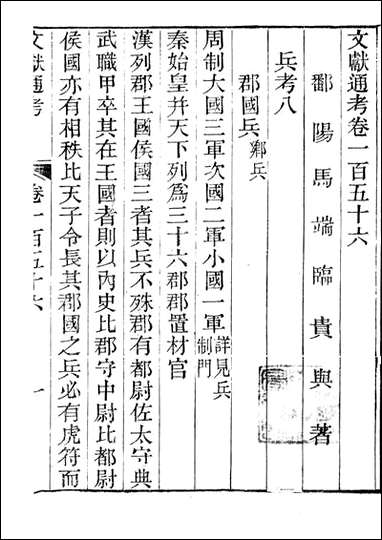 文獻通考卷一百五十六
鄱陽馬端臨貴與著
兵考八
郡國兵鄉兵
周制大國三軍次國二軍小國一軍詳見兵制門
秦始皇并天下列爲三十六郡郡置材官
漢列郡王國侯國三者其兵不殊郡有都尉佐太守典
武職甲卒其在王國者則以內史比郡守中尉比都尉
侯國亦有相秩比天子令長其郡國之兵必有虎符而
文獻通考
卷一百五十六
一